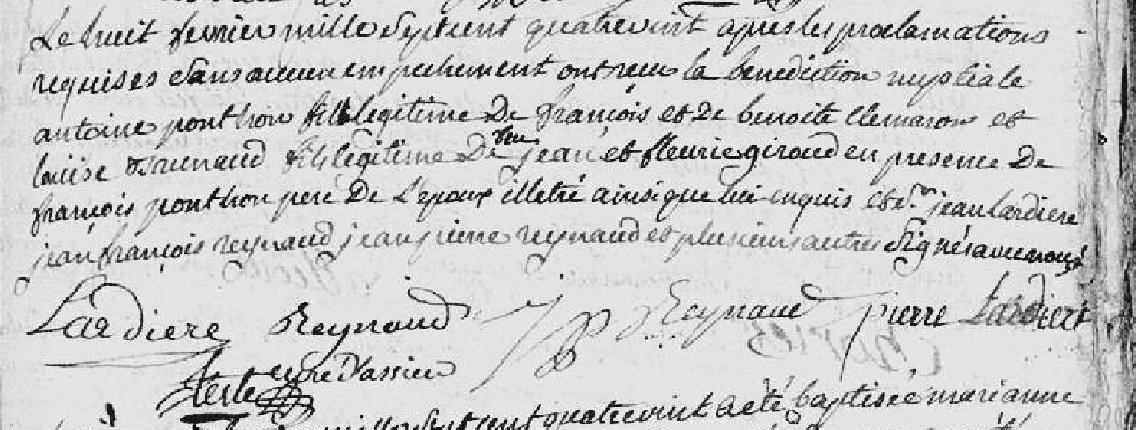 Le huit fevrier mille Sept cent quatre vint apres les proclamations
requises et sans aucun empechement ont recu la benediction nuptiale
antoine ponthon fils legitime De françois et de benoite Clemaron et
louise Reunaud fille legitime De feu jean et fleurie giroud en presence De
françois ponthon pere De L'epoux illetré ainsi que lui enquis et de Sr jean lardiere
jean françois reynaud jean pierre reynaud et plusieurs autres Signés avec nous
Lardiere Reynaud JP Reynaud pierre Lardiere
Teste curé D'assieu
mille Sept cent quatre vint a été baptisée marianne